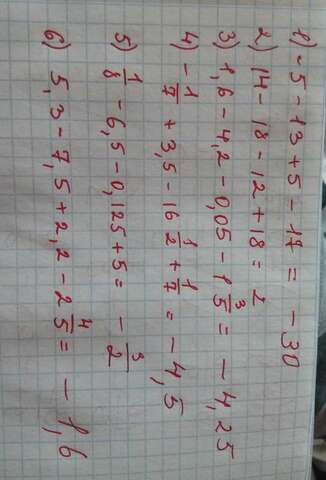 1) -5 - 13 + 5 - 17 = -30
2) 14 - 18 - 12 + 18 = 2
3) 1,6 - 4,2 - 0,05 - 1 3/5 = -4,25
4) -1/7 + 3,5 - 16 1/2 + 1/7 = -4,5
5) 1/8 - 6,5 - 0,125 + 5 = -3/2
6) 5,3 - 7,5 + 2,2 - 2 4/5 = -1,6